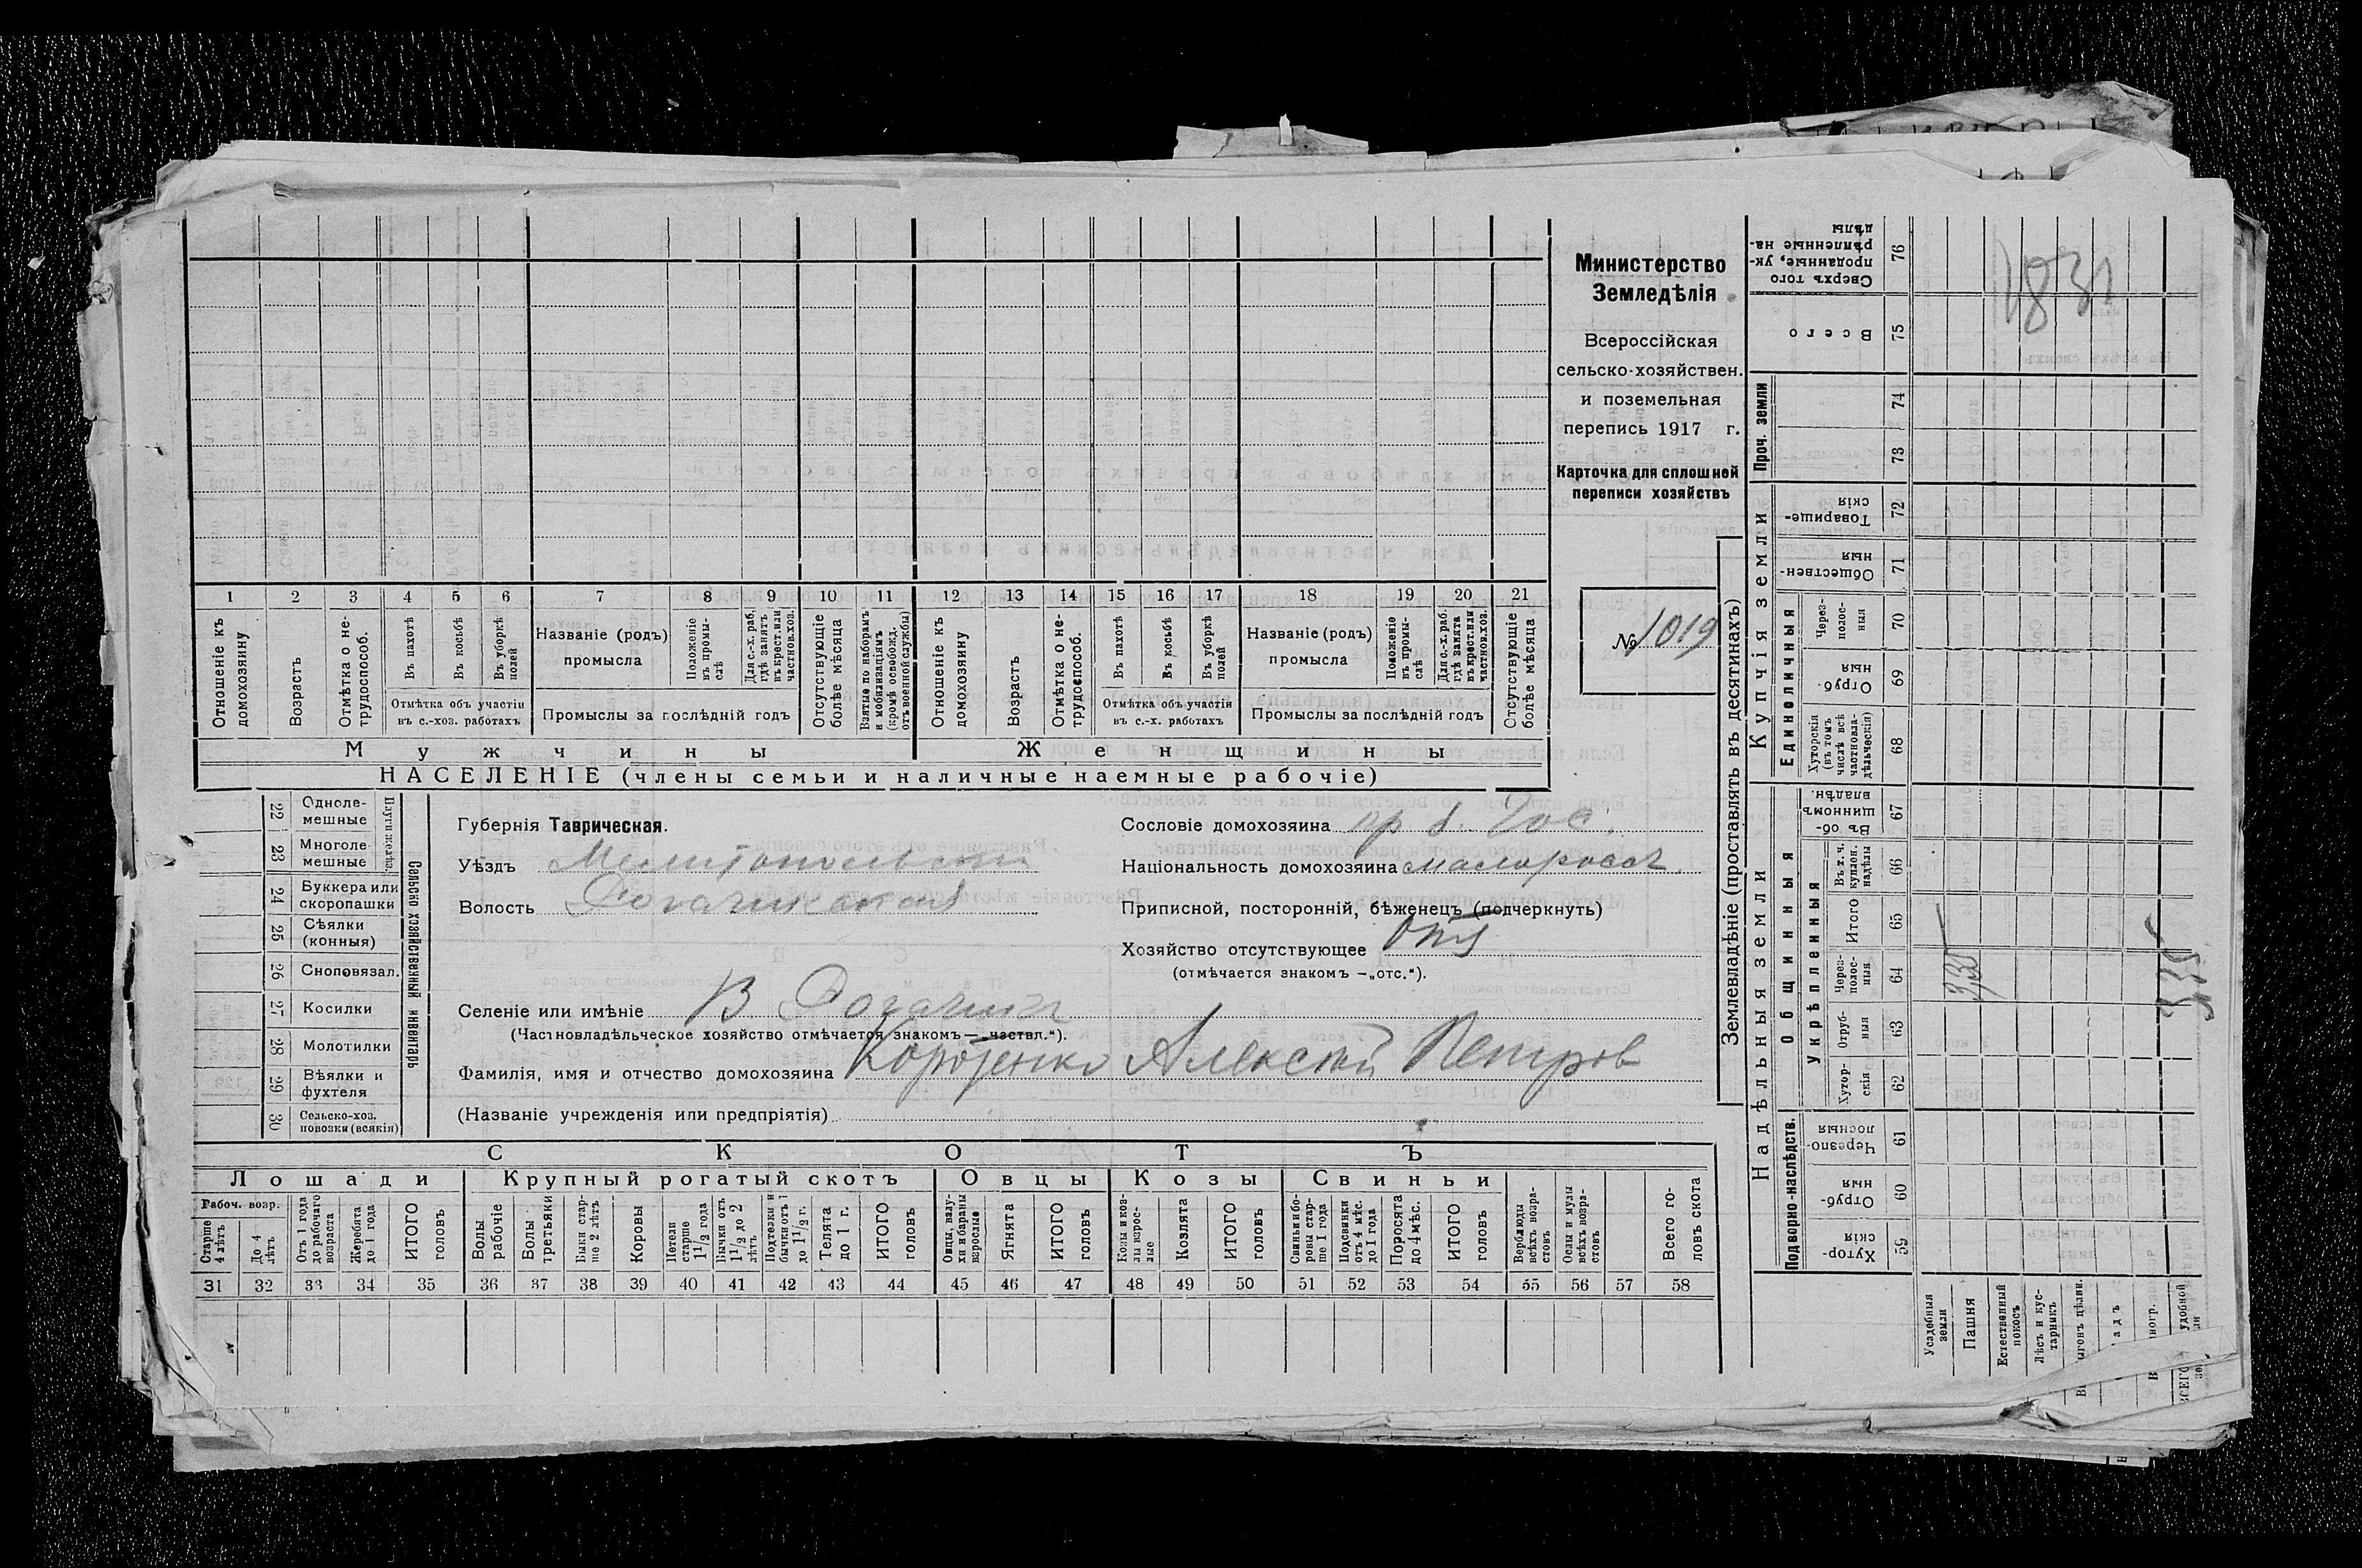 Министерство
Земледѣлія
Всероссійская
сельско-хозяйствен.
и поземельная
перепись 1917 г.
Карточка для сплошней
переписи хозяйствъ
№ 1019
1 2 3 4 5 6 7 8 9 10 11 12 13 14 15 16 17 18 19 20 21
Отношеніе къ домохозяину
Возрастъ
Отмѣтка о не-трудоспособ.
Въ пахотѣ
Въ косьбѣ
Въ уборкѣ полей
Отмѣтка объ участіи
въ с.-хоз. работахъ
Названіе (родъ)
промысла
Положеніе въ промы-слѣ
Для с.-х. раб. гдѣ занятъ въ крест. или частнов. хоз.
Промыслы за послѣдній годъ
Отсутствующіе болѣе мѣсяца
Взятые по наборамъ и мобилизаціямъ (кромѣ освобожд. отъ военной службы)
Отношеніе къ домохозяину
Возрастъ
Отмѣтка о не-трудоспособ.
Въ пахотѣ
Въ косьбѣ
Въ уборкѣ полей
Отмѣтка объ участіи
въ с.-х. работахъ
Названіе (родъ)
промысла
Положеніе въ промы-слѣ
Для с.-х. раб. гдѣ занята въ крест. или частнов. хоз.
Промыслы за послѣдній годъ
Отсутствующіе болѣе мѣсяца
Мужчины
Женщины
НАСЕЛЕНІЕ (члены семьи и наличные наемные рабочіе)
22 Одноле-мешные
23 Многоле мешные
24 Буккера или скоропашки
25 Сѣялки (конныя)
26 Сноповязал.
27 Косилки
28 Молотилки
29 Вѣялки и фухтеля
30 Сельско-хоз. повозки (всякія)
Сельско хозяйственный инвентарь
Губернія Таврическая.
Уѣздъ Мелитопольскій
Волость Рогачикская
Сословіе домохозяина пр б. Гос.
Національность домохозяина малоросс.
Приписной, посторонній, бѣженецъ (подчеркнуть)
Хозяйство отсутствующее Отс
(отмѣчается знакомъ –„отс.“).
Селеніе или имѣніе В. Рогачикъ
(Частновладѣльческое хозяйство отмѣчается знакомъ — частвл.“).
Фамилія, имя и отчество домохозяина Коротенко Алексѣй Петров
(Названіе учрежденія или предпріятія)
СКОТЪ
Лошади
Крупный рогатый скотъ
Овцы
Козы
Свиньи
Рабоч. возр.
Старше 4 лѣтъ
До 4 лѣтъ
Отъ 1 года до рабочаго возраста
Жеребята до 1 года
ИТОГО головъ
Волы рабочіе
Волы третьяки
Быки стар-ше 2 лѣтъ
Коровы
Нетели старше 1 1/2 года
Бычки отъ 1 1/2 до 2 лѣтъ
Подтелки и бычки отъ 1 до 1 1/2 г.
Телята до 1 г.
ИТОГО головъ
Овцы, валу-хи и бараны взрослые
Ягнята
ИТОГО головъ
Козы и коз-лы взрос-лые
Козлята
ИТОГО головъ
Свиньи и бо-ровы стар-ше 1 года
Подсвинки отъ 4 мѣс. до 1 года
Поросята до 4 мѣс.
ИТОГО головъ
Верблюды всѣхъ возра-стовъ
Ослы и мулы всѣхъ возра-стовъ
Всего го-ловъ скота
31 32 33 34 35 36 37 38 39 40 41 42 43 44 45 46 47 48 49 50 51 52 53 54 55 56 57 58
Землевладѣніе (проставлять въ десятинахъ)
Сверхъ того проданные, ук-рѣпленные на-дѣлы 76
Всего 75
Проч. земли
74
73
Купчія земли
Товарище-скія 72
Обществен-ныя 71
Единоличныя
Через-полос-ныя 70
Отруб-ныя 69
Хуторскія (въ томъ числѣ всѣ частновла-дѣльческія) 68
Надѣльныя земли
Общинныя
Въ об-щинномъ владѣн. 67
Укрѣпленныя
Въ т. ч. куплен. надѣлы 66
Итого 65
Через-полос-ныя 64
Отруб-ныя 63
Хутор-скія 62
Подворно-наслѣдств.
Черезпо-лосныя 61
Отруб-ныя 60
Хутор-скія 59
Усадебныя земли
Пашня
Естественный покосъ
Лѣсъ и кус-тарникъ
1831